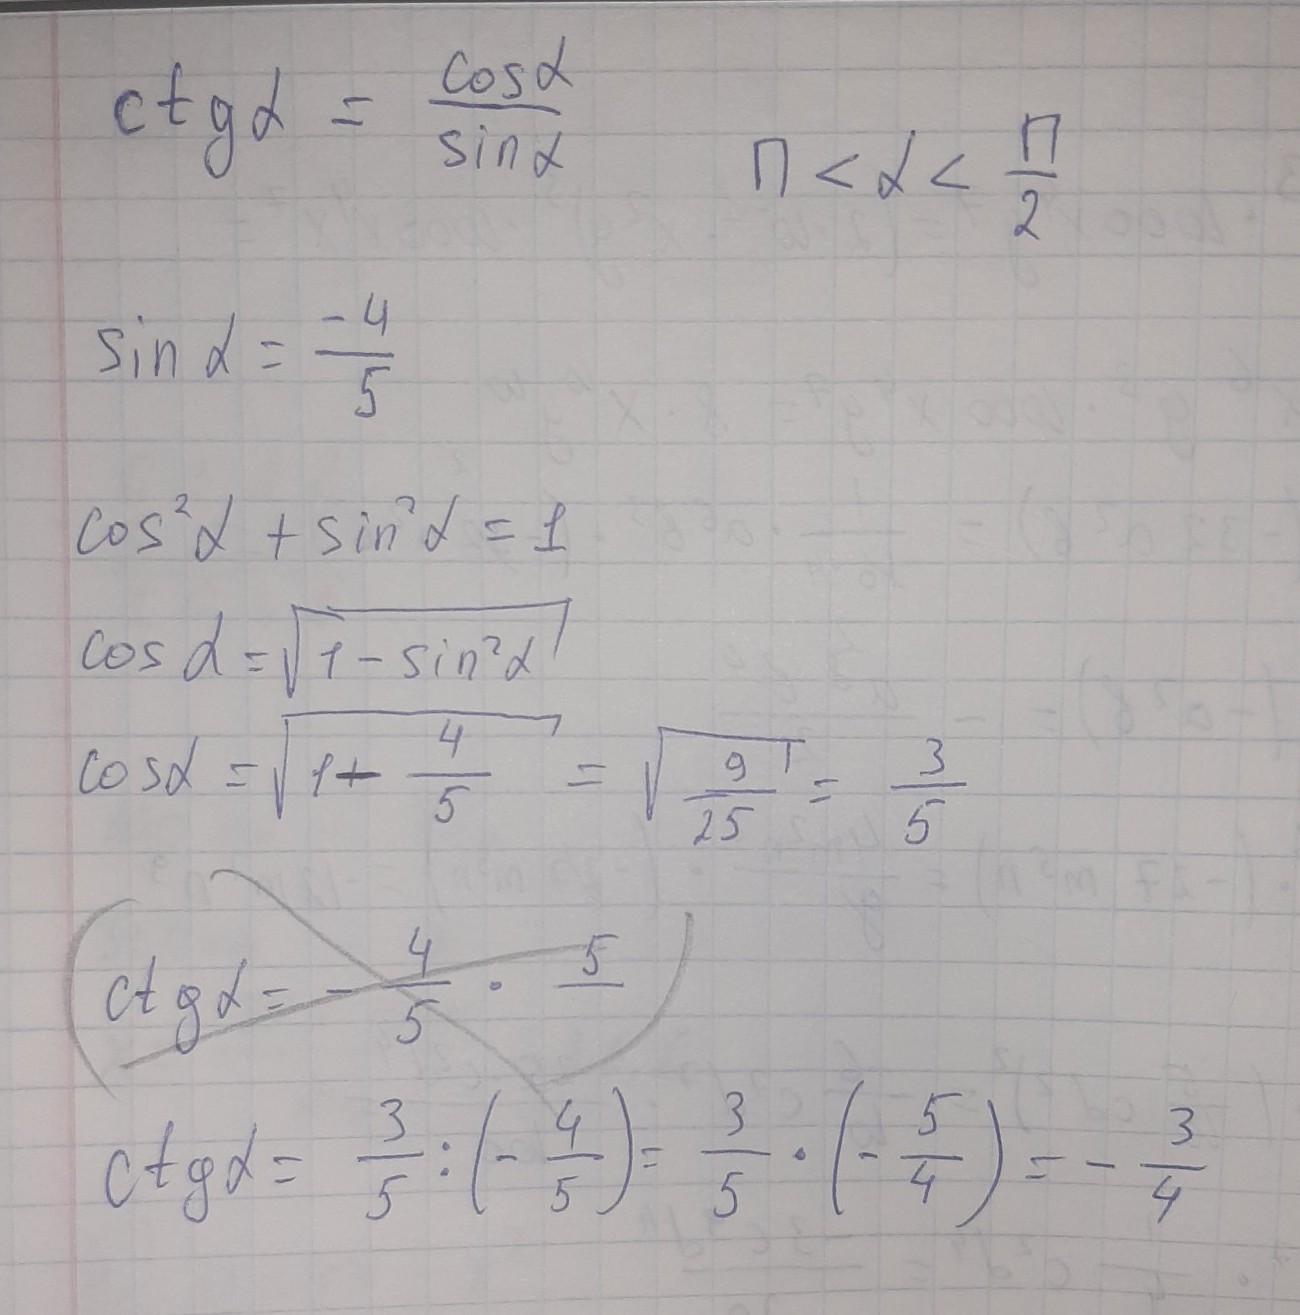 ctgα = cosα/sinα
π < α < π/2
sin α = -4/5
cos²α + sin²α = 1
cos α = √(1 - sin²α)
cosα = √(1+ 4/5) = √(9/25) = 3/5
ctgα = - 4/5 · 5/
ctgα = 3/5 : (- 4/5) = 3/5 · (- 5/4) = - 3/4